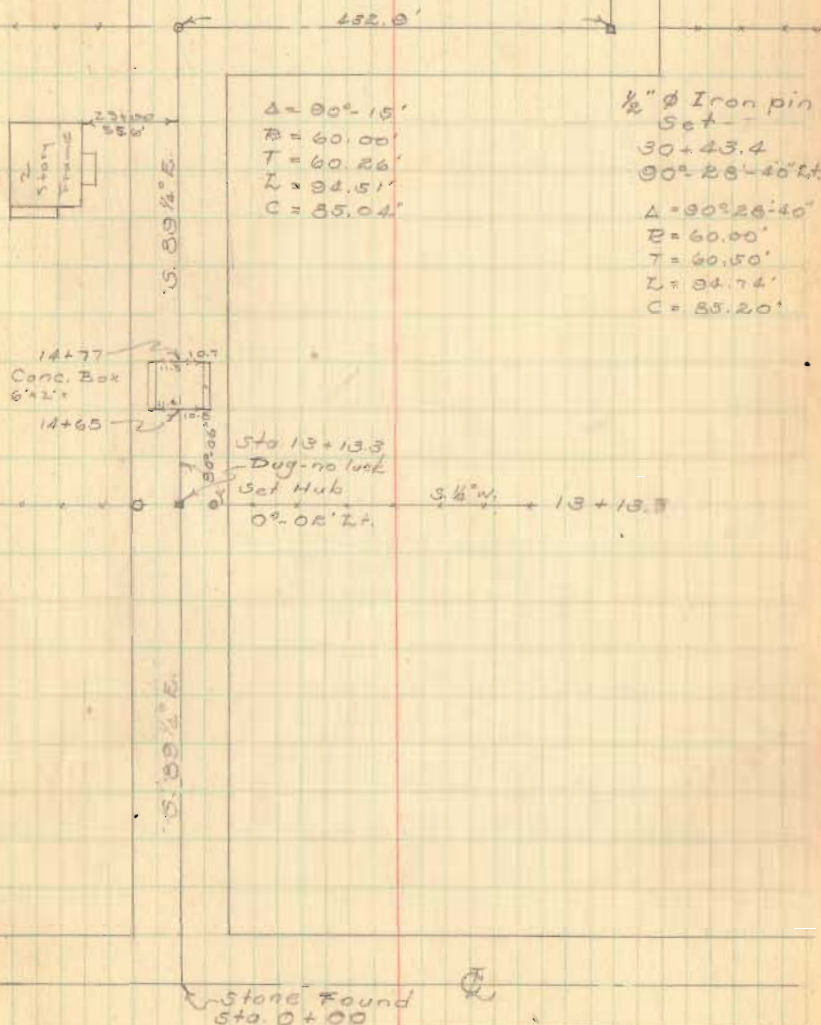 432.0'
23+00
55.6'
2
Story
Frame
Δ = 90°-15'
R = 60.00'
T = 60.26'
L = 94.51'
C = 85.04'
½" Ø Iron pin
Set -
30+43.4
90°-28'-40" Lt.
Δ = 90°28'-40"
R = 60.00'
T = 60.50'
L = 94.74'
C = 85.20'
S. 89¼° E.
14+77
10.7
Conc. Box
6'x2'x
14+65
90°-06'
Sta 13+13.3
Dug-no luck
Set Hub
0°-02' Lt.
S. ½° W.
13+13.3
S. 89¼° E.
Stone Found
Sta. 0+00